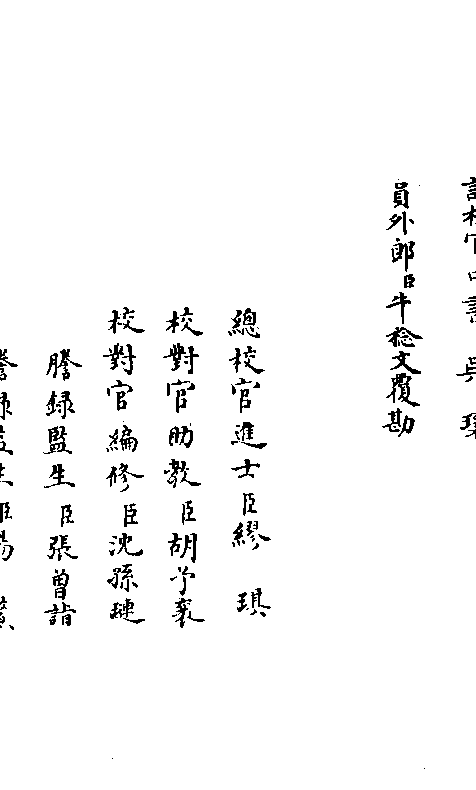 詳校官中書 吳璟
員外郎臣牛稔文覆勘
總校官進士臣繆琪
校對官助教臣胡予襄
校對官編修臣沈孫璉
謄錄監生臣張曾詣
謄錄監生臣楊